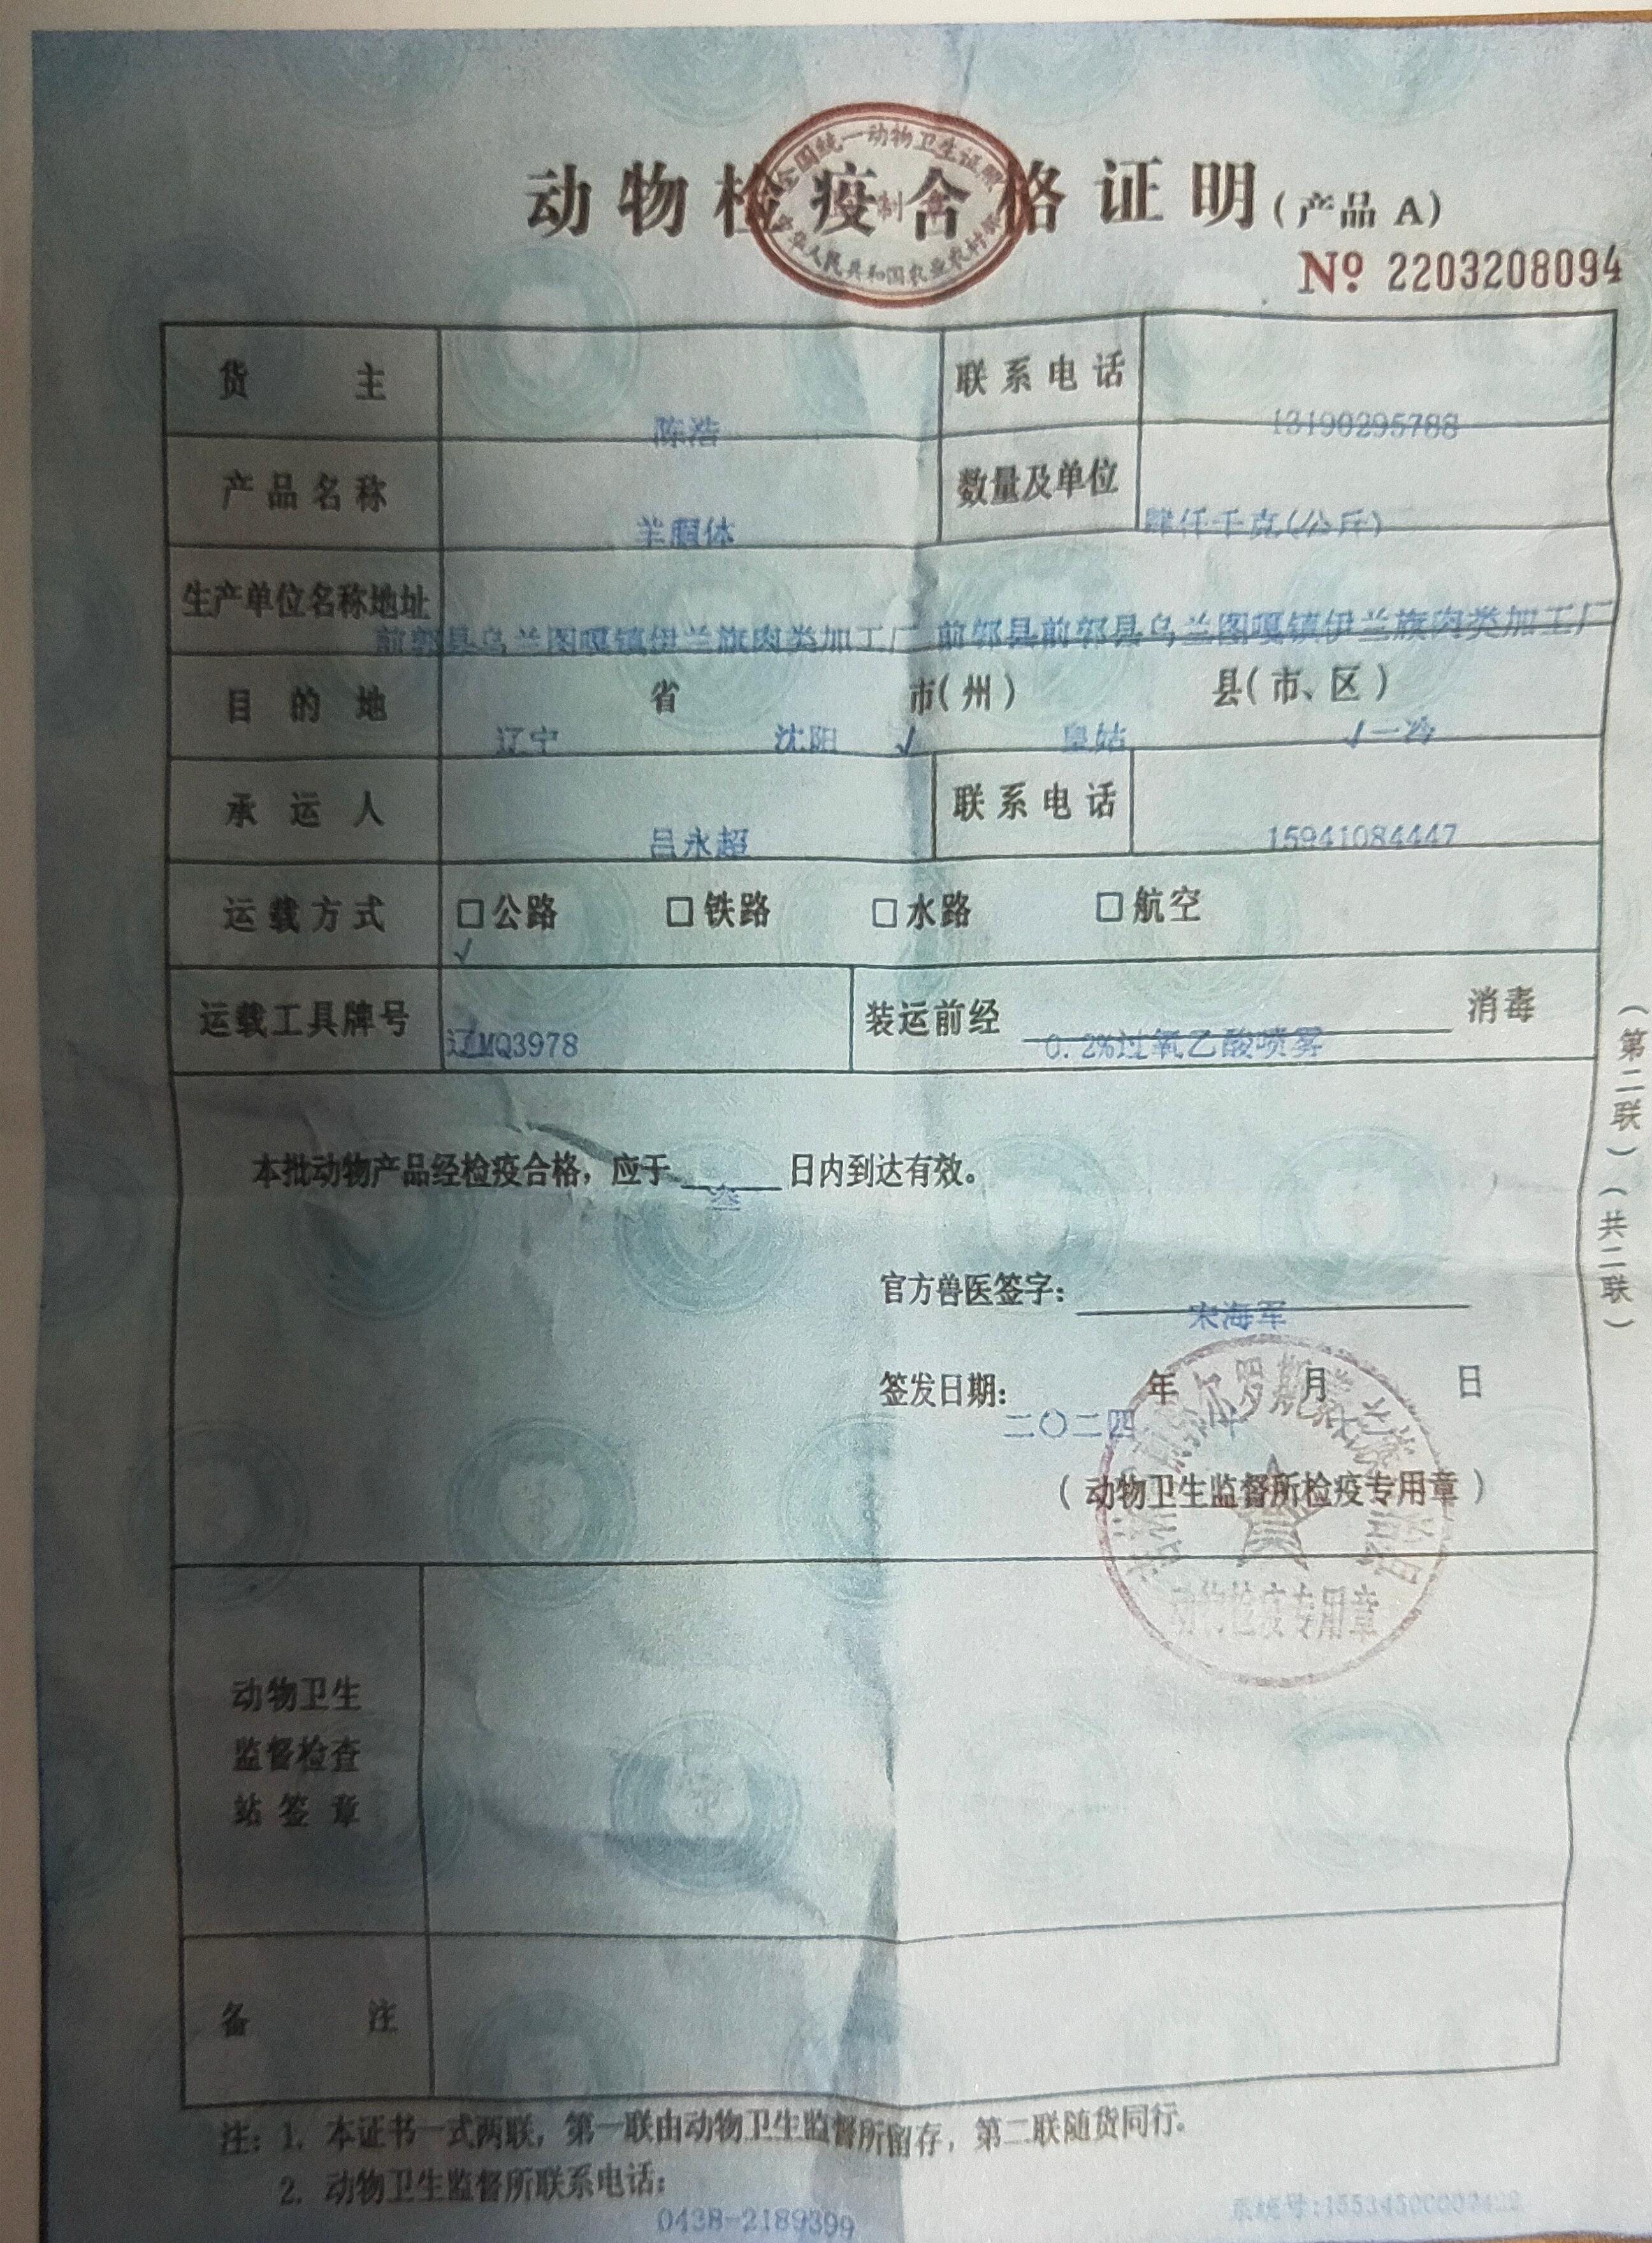 动物检疫合格证明(产品 A)
全国统一动物卫生证照
中华人民共和国农业农村部
№ 2203208094
货主 陈浩 联系电话 13190295788
产品名称 羊胴体 数量及单位 肆仟千克(公斤)
生产单位名称地址 前郭县乌兰图嘎镇伊兰旗肉类加工厂 前郭县前郭县乌兰图嘎镇伊兰旗肉类加工厂
目的地 省 市(州) 县(市、区)
辽宁 沈阳 √ 皇姑 √一冷
承运人 吕永超 联系电话 15941084447
运载方式 □公路 □铁路 □水路 □航空
√
运载工具牌号 辽MQ3978 装运前经 0.2%过氧乙酸喷雾 消毒
本批动物产品经检疫合格，应于 叁 日内到达有效。
官方兽医签字： 宋海军
签发日期： 年 月 日
二〇二四 十
(动物卫生监督所检疫专用章)
动物检疫专用章
动物卫生
监督检查
站签章
备注
注：1. 本证书一式两联，第一联由动物卫生监督所留存，第二联随货同行。
2. 动物卫生监督所联系电话：
0438-2189399
系统号:
(第二联)(共二联)